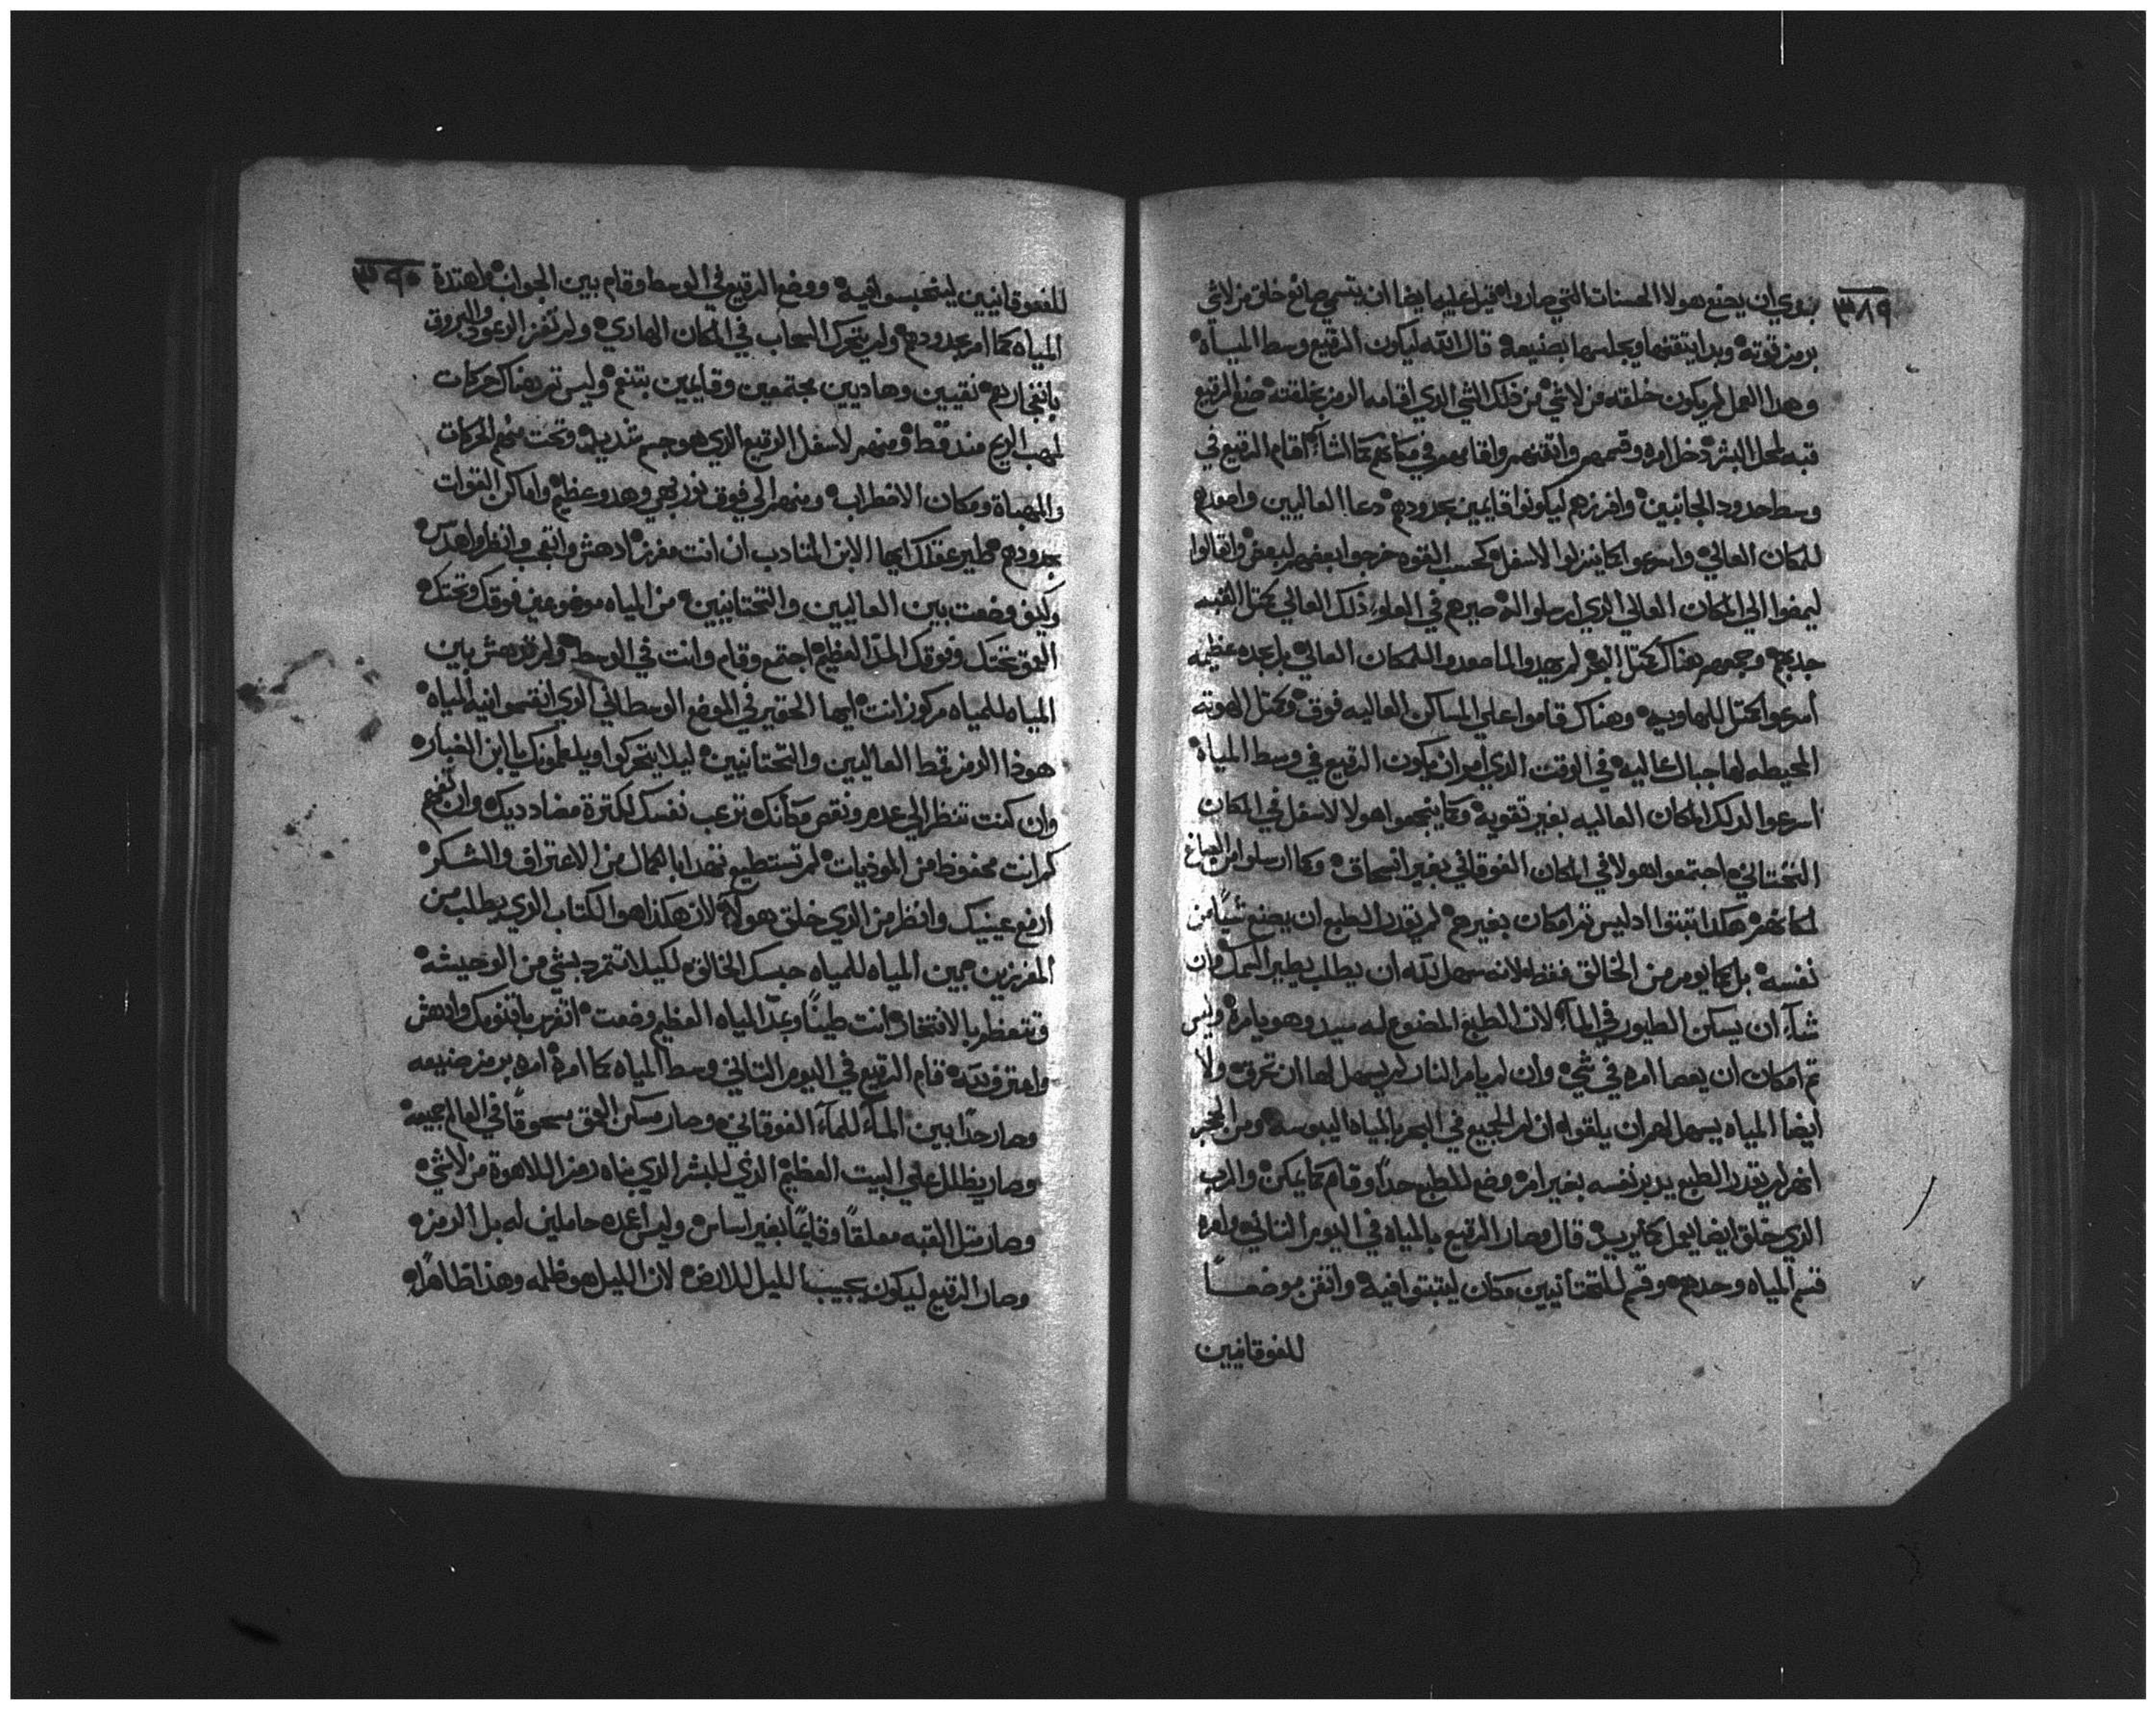 ٣٨٩
بروي ان يصنع هولا الحسنات التي صاروا قبل عليها ايضا ان يتسمي صانع خلق من لاشي
برمز قوته وبدا يتقنها ويجلسها بصنيعه قال الله ليكون الرقيع وسط المياه
وهدا العمل لم يكون خلقته من لاشي من ذلك الشي الدي اقامه الرمز بخلقته صنع الرقيع
دخل امره وقسمهم واتقنهم واقامهم في مكانهم كما شآء اقام الرقيع في
وسط حدود الجانبين وافرزهم ليكونوا قايمين بحدودهم دعا العاليين واصعدهم
للمكان العالي واسرعوا كما ينزلوا لاسفل كحسب القوه خرجوا بعضهم لبعض واقالوا
ليمضوا الي المكان العالي الدي ارسلوا اليه صيرهم في العلو ذلك العالي كمتل القبه
جدبهم وجمعهم هناك كمتل لم يهدوا لما صعدوا للمكان العالي بل بعده عظيمه
اسرعوا كمتل للهاويه وهناك قاموا علي المساكن العاليه فوق وكمتل الهوته
المحيطه لها جبال عاليه في الوقت الدي امر ان يكون الرقيع في وسط المياه
اسرعوا لدلك المكان العاليه بغير تقويه وكما ينجمعوا هولا لاسفل في المكان
التختاني اجتمعوا هولا في المكان الفوقاني بغير انسحاق وكما ارسلوا من الصانع
لمكانهم هكدا تبتوا ادليس تم امكان بغيرهم لم يقدر الطبع ان يصنع شيًا من
نفسه بل كما يومر من الخالق فقط لانه سهل لله ان يطلب يطير السمك وان
شآء ان يسكن الطيور في المآء لان الطبع المصنوع له سيد وهو يامره وليس
تم امكان ان يعصا امره في شي وان لم يامر النار لم يسهل لها ان تحرق ولا
ايضا المياه يسهل لهم ان يلقوا ان لم الجميع في البحر بالمياه اليبوسه ومن المخبر
انهم لم يقدر الطبع يدبر نفسه بغير امره وضع للطبع حدًا وقام كما يمكن والرب
الدي خلق ايضا يعمل كما يريد قال وصار الرقيع بالمياه في اليوم التاني وامره
قسم المياه وحدهم وقسم للتحتانيين مكان ليتبتوا فيه واتقن موضعـــًا
للفوقانيين
٣٩٠
للفوقانيين لينحبسوا فيه ووضع الرقيع في الوسط وقام بين الجوانب واهتدة
المياه كما امر بحدودهم ولم يتحرك السحاب في المكان الهادي ولم تفزز الرعود والبروق
بانفجارهم نقيين وهاديين مجتمعين وقايمين بتنع وليس تم هناك حركات
لمهب الريح منه فقط ومنهم لاسفل الرقيع الدي هو جسم شديد وتحت منهم الحركات
والمهباه ومكان الاضطراب ومنهم الي فوق نور بهي وهدو عظيم واماكن القوات
بحدودهم طير عقلك ايها الابن المتادب ان انت مفرز ادهش واتعجب وانظر واهدس
وكيف وضعت بين العاليين والتحتانيين من المياه موضوعين فوقك وتحتك
تحتك وفوقك المدّ العظيم اجتمع وقام وانت في الوسط ولم تدهش بين
المياه للمياه مركوز انت ايها الحقير في الموضع الوسطاني الدي انقسموا فيه المياه
هودا الرمز قمط العاليين والتحتانيين ليلا يتحركوا ويلطمونك يا ابن الغبار
وان كنت تنظر الي عدم ونقص مكانك ترعب نفسك لكترة مضادديك وان تفهم
كم انت محفوظ من الموذيات لم تستطيع تهدا بالكمال من الاعتراف والشكر
ارفع عينيك وانظر من الدي خلق هولاء لان هكذا هو الكتاب الدي يطلب من
المفرزين بين المياه للمياه حبسك الخالق لكيلا تتمرد بشي من الوحيشه
وتتعظم بالافتخار انت طينًا وبمدّ المياه العظيم وضعت اتفرس باقنومك وادهش
واعترف لله قام الرقيع في اليوم التاني وسط المياه كما امره امره برمز صنيعه
وصار حدًا بين المآء للمآء الفوقاني وصار مسكن العمق سحوقًا في العالم جميعه
وصار يظلل علي البيت العظيم الدي للبشر الدي بناه رمز اللاهوة من لاشي
وصار متل القبه معلقًا وقايمًا بغير اساس وليس اعمده حاملين له بل الرمز
وصار الرقيع ليكون يجيب الليل للارض لان الليل هو ظلمه وهذا ظاهرًا